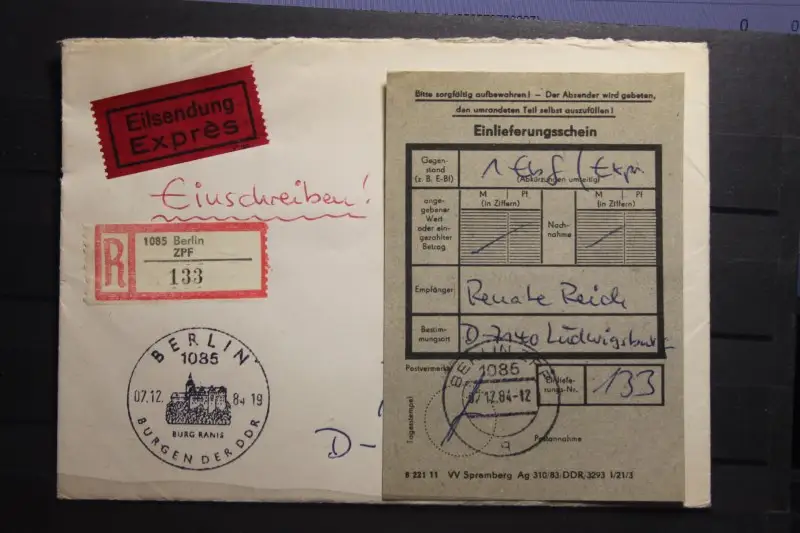 0
Eilsendung
Exprès
Einschreiben!
R
1085 Berlin
ZPF
133
BERLIN
1085
07.12. 84 19
BURG RANIS
BURGEN DER DDR
D-
Bitte sorgfältig aufbewahren! – Der Absender wird gebeten,
den umrandeten Teil selbst auszufüllen!
Einlieferungsschein
Gegen-
stand
(z. B. E-Bf)
(Abkürzungen umseitig)
ange-
gebener
Wert
oder ein-
gezahlter
Betrag
M Pf
(in Ziffern)
Nach-
nahme
M Pf
(in Ziffern)
Empfänger
Renate Reich
Bestim-
mungsort
D-7140 Ludwigsburg
Postvermerke
BERLIN
1085
07.12.84-12
a
Einliefe-
rungs-Nr.
133
Tagesstempel
Postannahme
B 221 11 VV Spremberg Ag 310/83 DDR, 3293 I/21/3